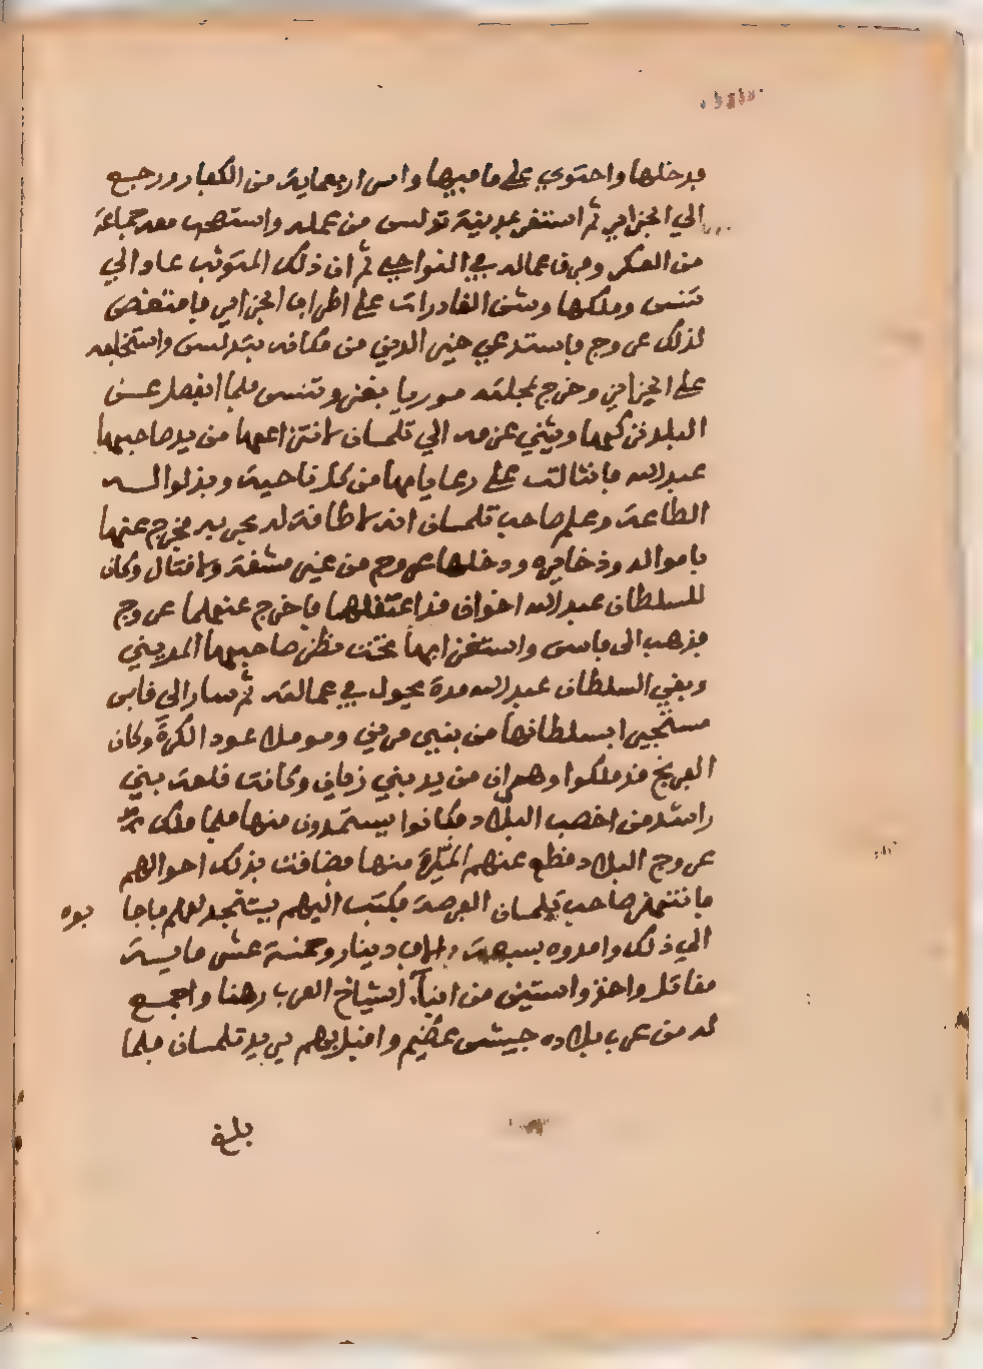 فدخلها واحتوي على ما فيها واسر اربعماية من الكفار ورجع
الي الجزاير ثم استنفر بمدينة تونس من عمله واستصحب معه جماعة
من العسكر وفرق عماله في النواحي ثم ان ذلك المتوثب عاد الي
تنس وملكها وشن الغارات على اطراف الجزاير فامتعض
لذلك عروج فاستدعي خير الدين من مكانه بتدلس واستخلفه
على الجزاير وخرج بمحلته موريا بغزو تنس فلما انفصل عن
البلد نكبها ويثني عزمه الي تلمسان لانتزاعها من يد صاحبها
عبد الله فانثالت على رعاياها من كل ناحية وبذلوا له
الطاعة وعلم صاحب تلمسان انه لا طاقة له بحربه فخرج عنها
بامواله وذخايره ودخلها عروج من غير مشقة ولا قتال وكان
للسلطان عبد الله اخوان قد اعتقلهما فاخرج عنهما عروج
فذهب الى فاس واستقرا بها تحت نظر صاحبها المريني
وبقي السلطان عبد الله مدة يجول في عمالته ثم سار الى فاس
مستجيرا بسلطانها من بني مرين وموملا عود الكرة وكان
الفرنج قد ملكوا وهران من يد بني زيان وكانت قلعة بني
راشد من اخصب البلاد فكانوا يستمدون منها فلما ملك
عروج البلاد قطع عنهم الميرة منها فضاقت بذلك احوالهم
فانتهز صاحب تلمسان الفرصة فكتب اليهم يستنجدهم فاجا بوه
الي ذلك وامدوه بسبعة الاف دينار وخمسة عشر ماية
مقاتل واخذوا ستين من ابناء اشياخ العرب رهنا واجمع
له من عرب بلاده جيش عظيم واقبل بهم يريد تلمسان فلما
بلغ